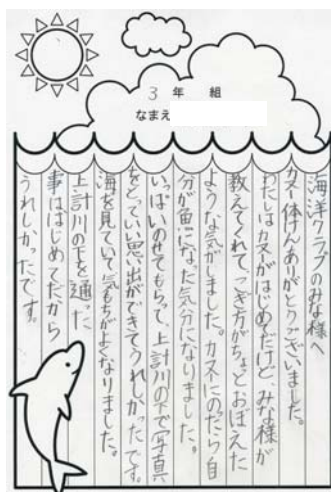 3 年 組
なまえ
海洋クラブのみな様へ
カヌー体けんありがとうございました。
わたしはカヌーがはじめてだけど、みな様が
教えてくれて、こぎ方がちょっとおぼえた
ような気がしました。カヌーにのったら自
分が魚になった気分になりました。
いっぱいのせてもらって、上計川の下で写真
をとっていい思い出ができてうれしかったです。
海を見ていて気もちがよくなりました。
上計川の下を通った
事ははじめてだから
うれしかったです。